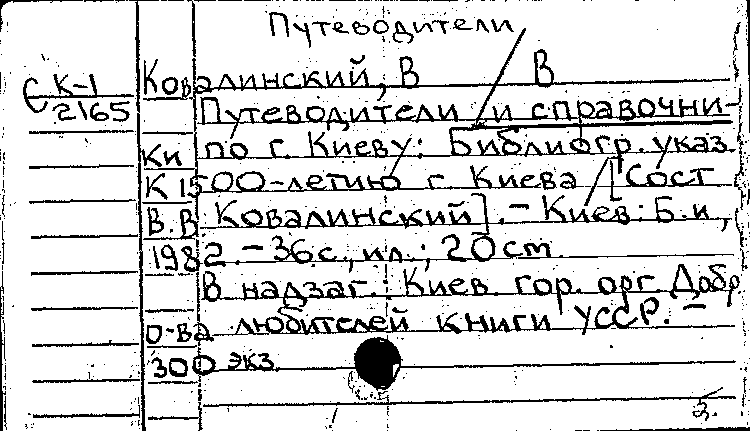 Путеводители
К-1 Ковалинский, В В
2165 Путеводители и справочни-
ки по г. Киеву: Библиогр. указ.
К 1500-летию г. Киева [Сост
В.В. Ковалинский]. – Киев: Б.и,
1982. – 36с., ил.; 20 cm
В надзаг.: Киев. гор. орг. Добр
о-ва любителей книги УССР. –
300 экз.